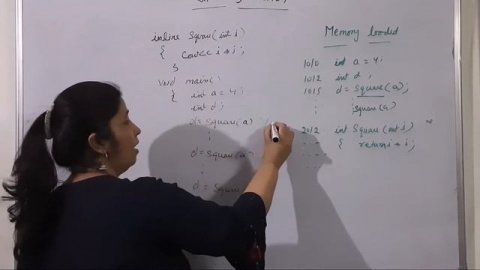 inline Squar(int i)
{ Cout<< i * i ;
}
void main(
{ int a = 4;
int d ;
d = Square(a)
d = Square(a)
d = Square
Memory loaded
1010 int a = 4.
1012 int d ;
1015 d = Square(a);
⋮ Square(a)
2012 int Square(int i)
{ return i * i;